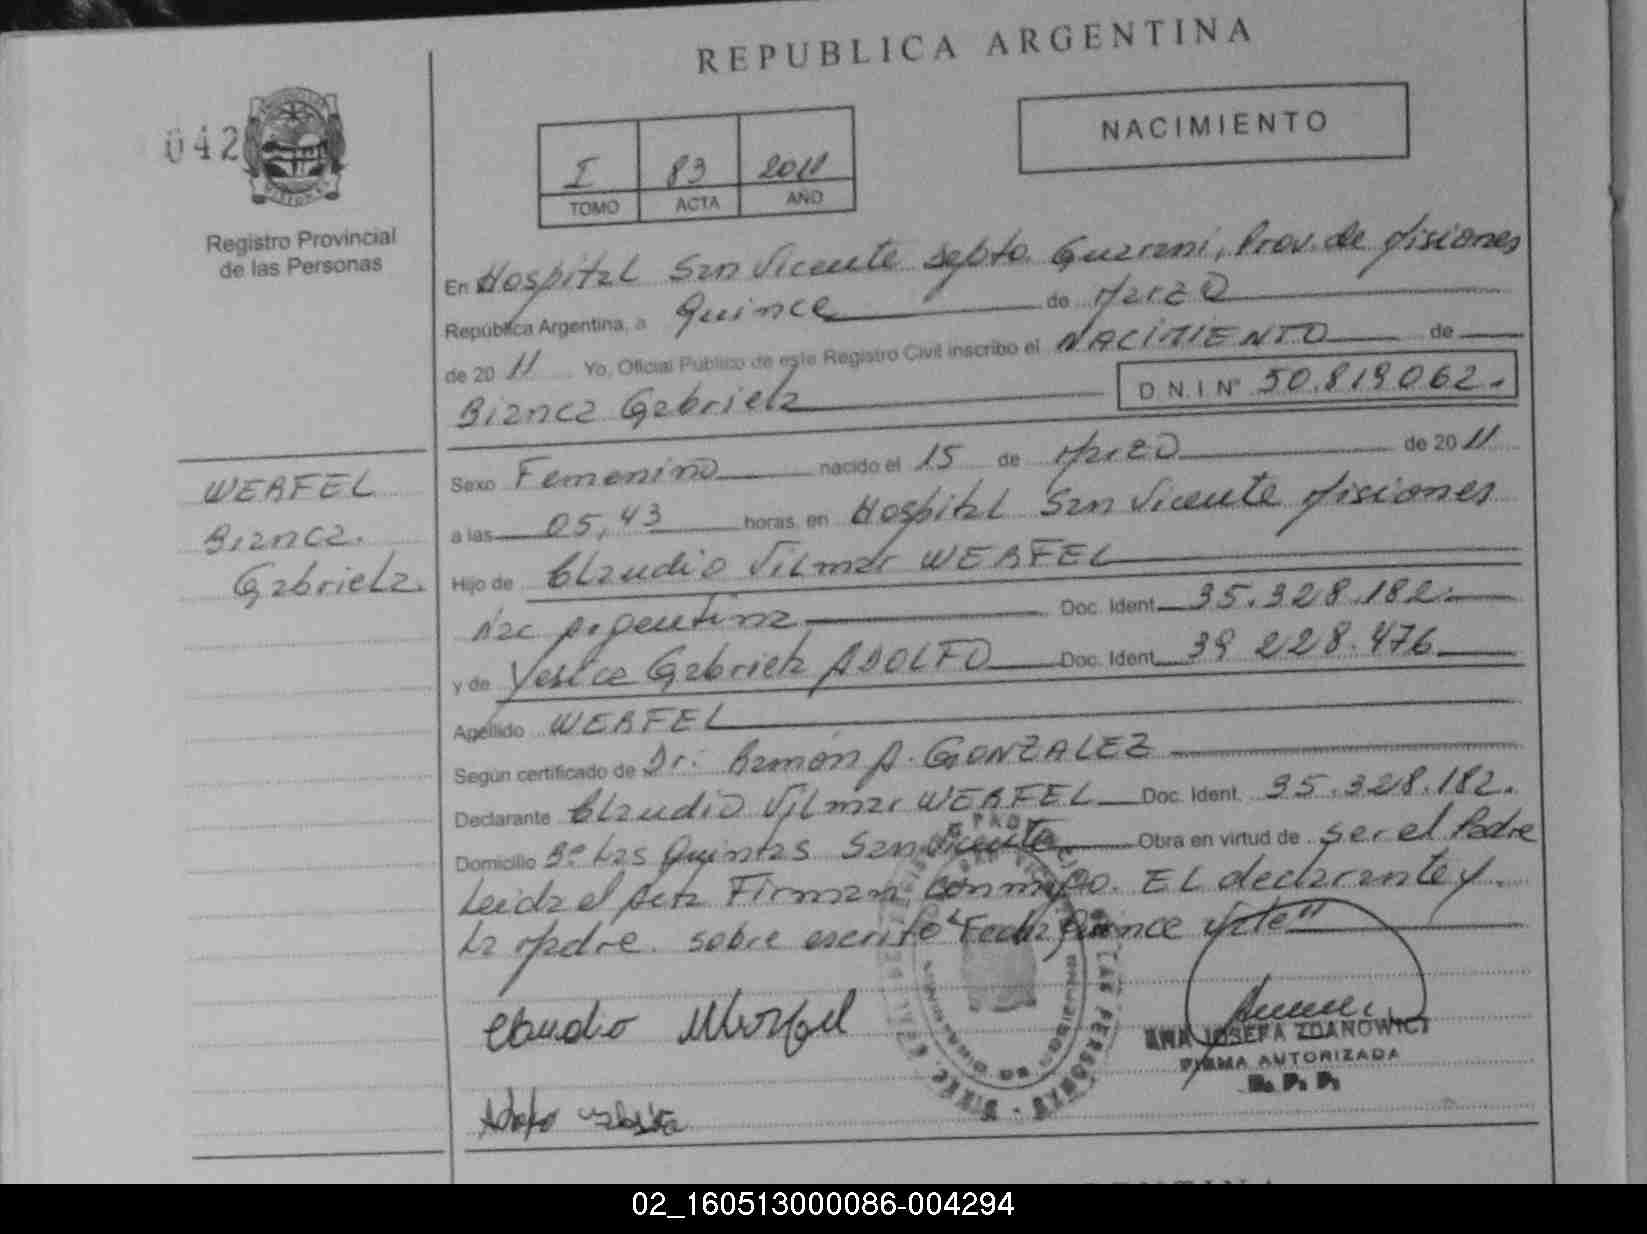 REPUBLICA ARGENTINA
042
NACIMIENTO
I 83 2011
TOMO ACTA AÑO
Registro Provincial
de las Personas
En Hospital San Vicente Depto. Guarani, Prov. de Misiones
República Argentina, a Quince de Marzo
de 2011 Yo, Oficial Público de este Registro Civil inscribo el NACIMIENTO de
Bianca Gabriela D.N.I Nº 50.819.062.
WERFEL
Bianca.
Gabriela.
Sexo Femenino nacido el 15 de Marzo de 2011
a las 05,43 horas, en Hospital San Vicente Misiones
Hijo de Claudio Vilmar WERFEL
Nac Argentina Doc. Ident. 35.328.182.
y de Yesica Gabriela ADOLFO Doc. Ident. 39 228.476
Apellido WERFEL
Según certificado de Dr: Ramón A. GONZALEZ
Declarante Claudio Vilmar WERFEL Doc. Ident. 35.328.182.
Domicilio Bº Las Quintas San Vicente Obra en virtud de ser el Padre
Leida el Acta Firman conmigo. EL declarante y
La Madre. sobre escrito "Fecha Quince Vale"
Claudio Werfel
ANA JOSEFA ZDANOWICZ
FIRMA AUTORIZADA
R. P. P.
Adolfo
02_160513000086-004294